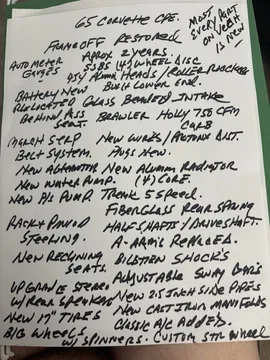 65 CORVETTE CPE.
MOST EVERY PART ON VEH IS NEW
FRAME OFF RESTORED
APROX 2 YEARS.
AUTO METER GAUGES
SSBS (4) WHEEL DISC
454 ALUM HEADS/ROLLER ROCKERS
BATTERY NEW BUILT LOWER END.
RELOCATED GLASS BEADED INTAKE
BEHIND PASS SEAT.
BRAWLER HOLLY 750 CFM CARB
MARCH SERP BELT SYSTEM.
NEW WIRES/AUTOLITE DIST.
PLUGS NEW.
NEW ALTERNATOR NEW ALUMINUM RADIATOR
NEW WATER PUMP. (4) CORE.
NEW P/S PUMP. TREMK 5 SPEED.
FIBERGLASS REAR SPRING
RACK & PINION STEERING.
HALF SHAFTS/DRIVESHAFT.
A-ARMS REPLACED.
NEW RECLINING SEATS.
BILSTEN SHOCKS
ADJUSTABLE SWAY BARS
UPGRADE STEREO W/REAR SPEAKERS
NEW 2.5 INCH SIDE PIPES
NEW 17" TIRES
NEW CAST IRON MANIFOLDS
CLASSIC A/C ADDED.
BIG WHEELS W/SPINNERS. CUSTOM STR WHEEL